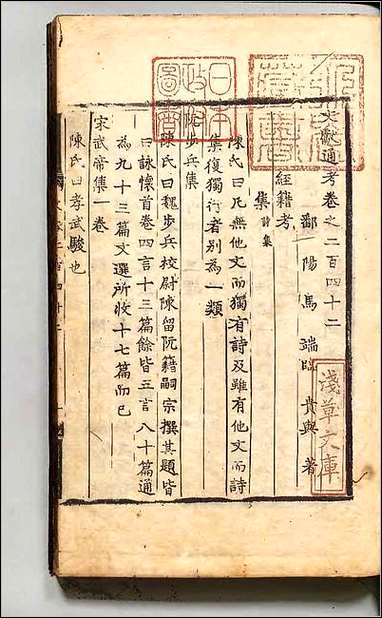 文獻通考卷之二百四十二
鄱陽馬端臨貴與著
經籍考
集 詩集
陳氏曰凡無他文而獨有詩及雖有他文而詩
集復獨行者別為一類
阮步兵集
陳氏曰魏步兵校尉陳留阮籍嗣宗撰其題皆
曰詠懷首卷四言十三篇餘皆五言八十篇通
為九十三篇文選所收十七篇而已
宋武帝集一卷
陳氏曰孝武駿也
日本
政府
圖書
淺草文庫